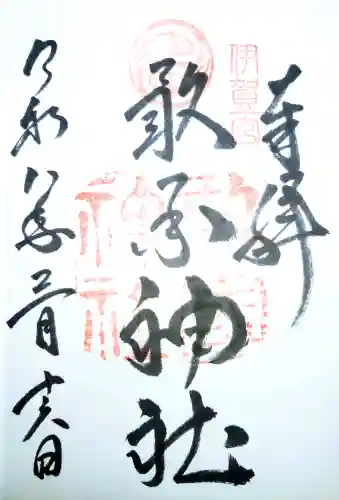 奉拝
伊賀一宮
敢國神社
令和八年 月十六日